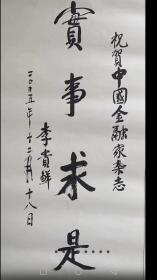 祝贺中國金融家杂志
實事求是
李貴鲜
二〇〇五年十二月十八日